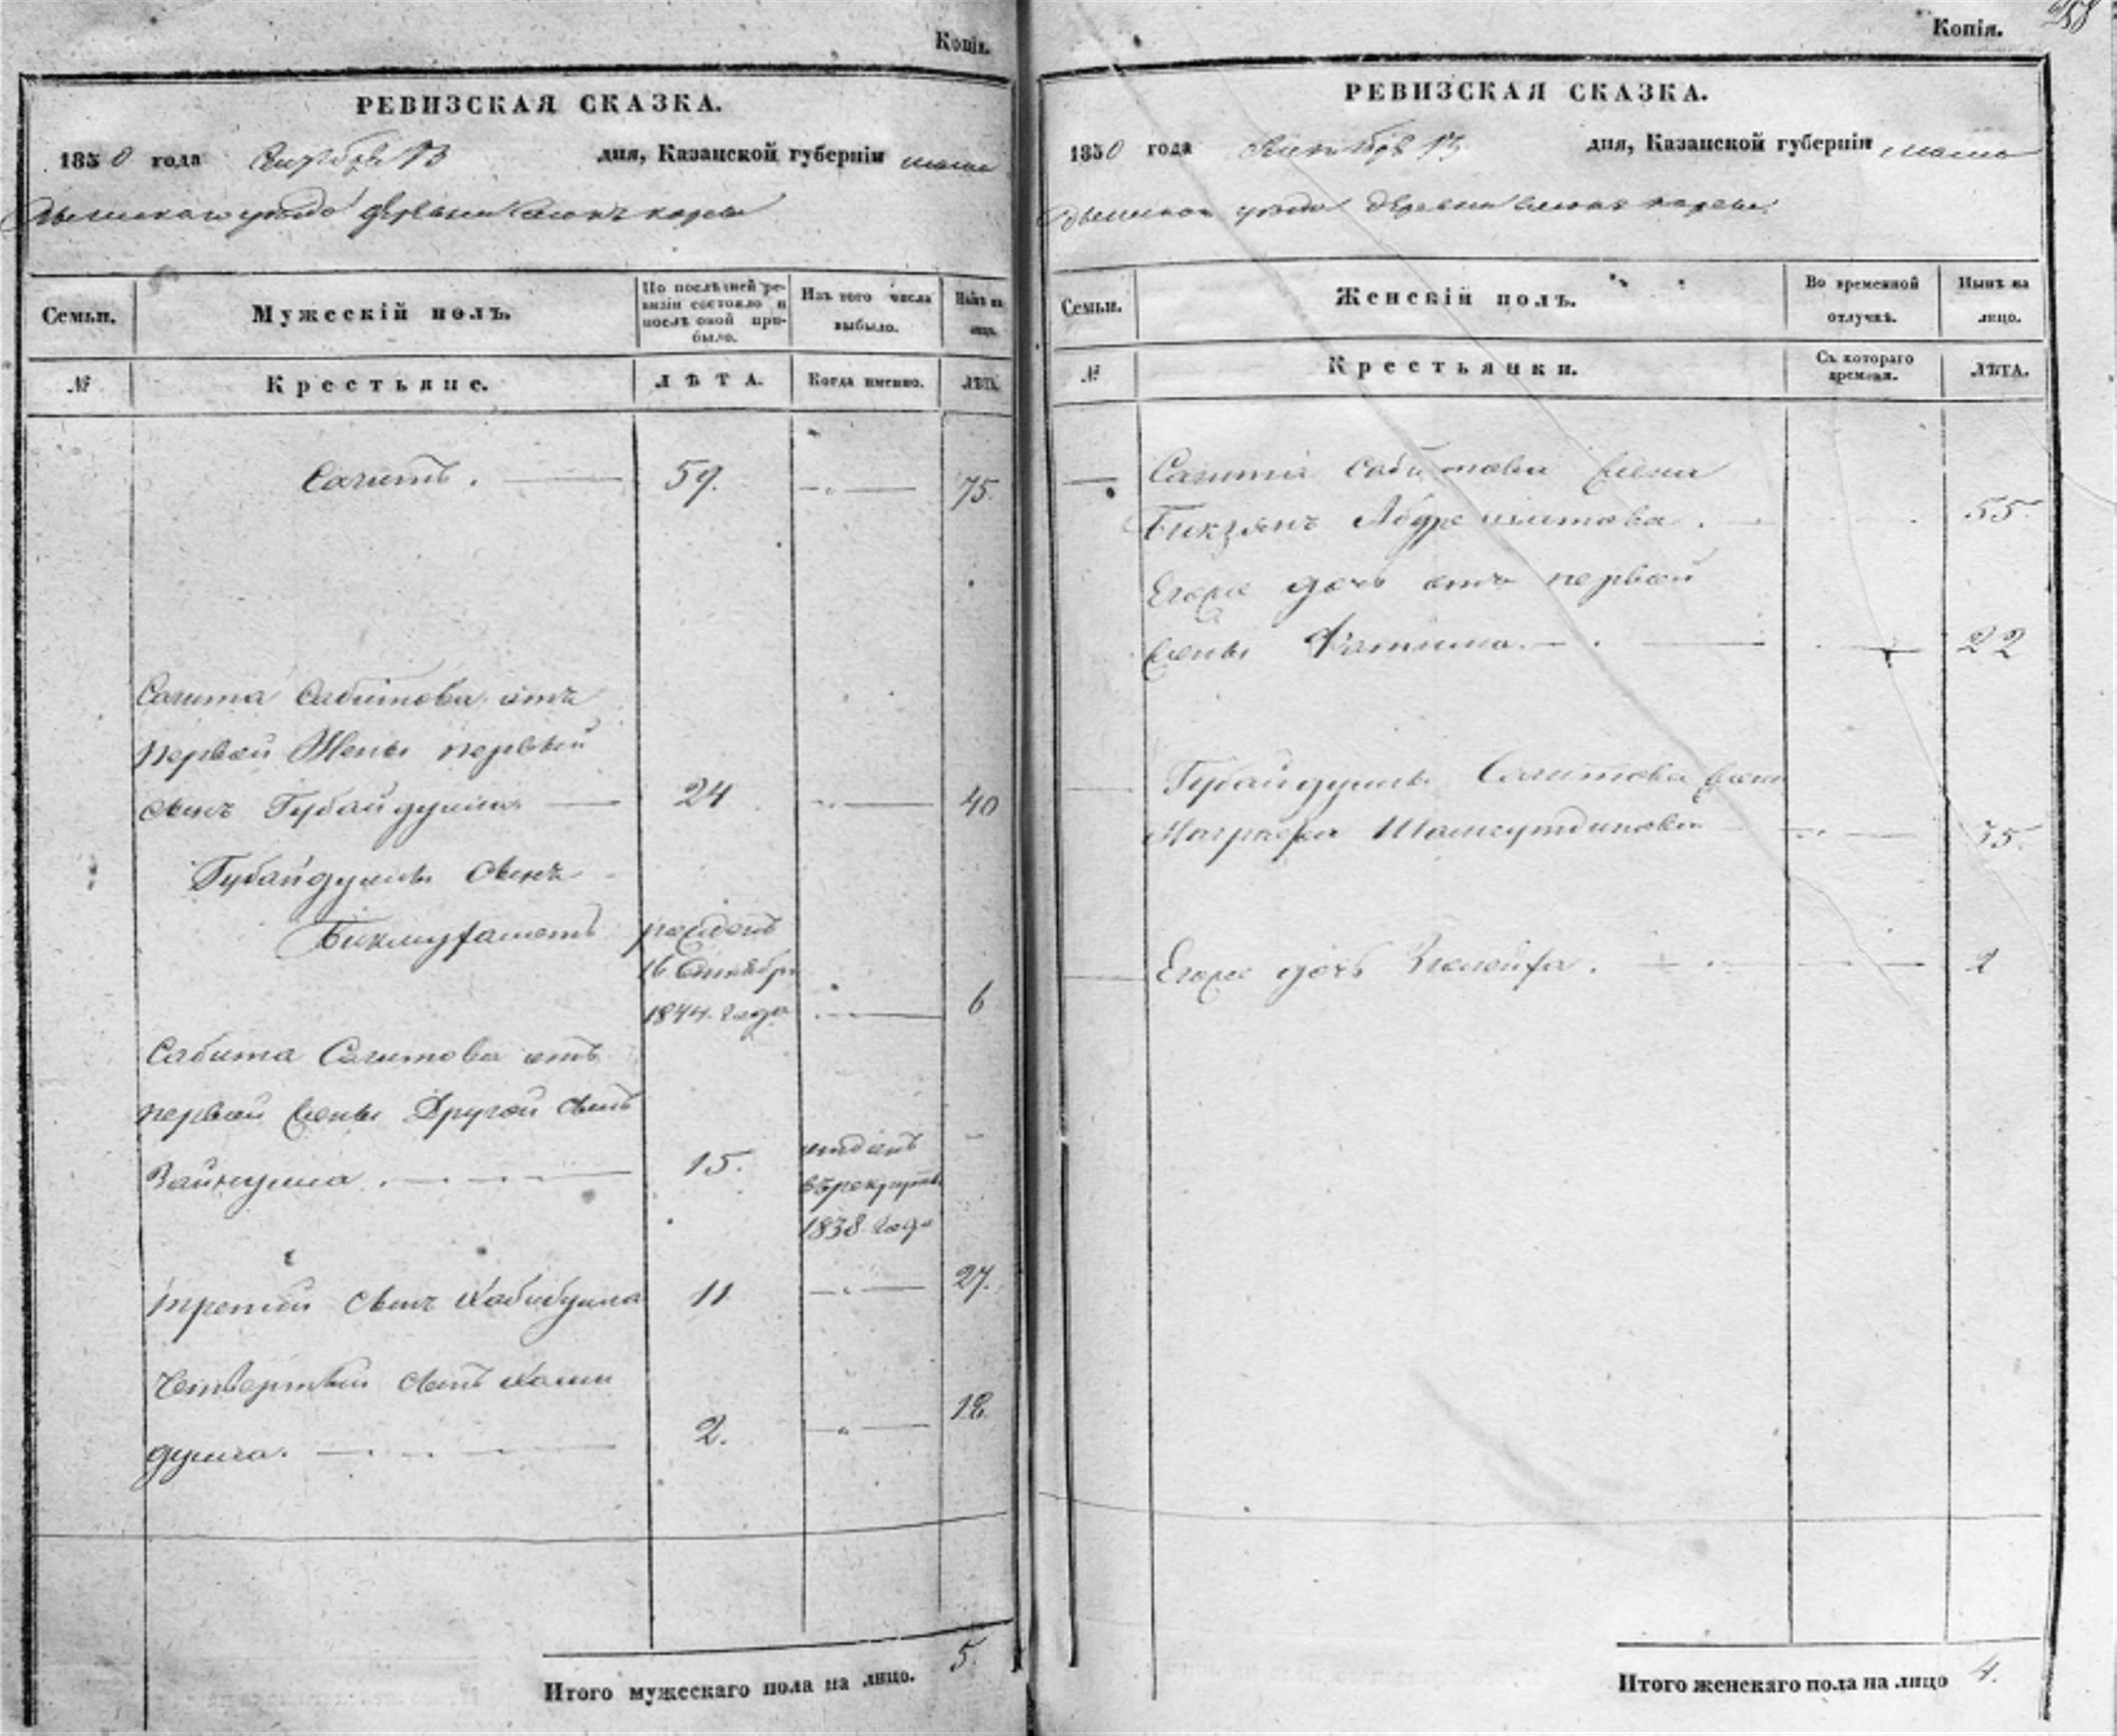 Копія.
РЕВИЗСКАЯ СКАЗКА.
1850 года Сентября 13 дня, Казанской губерніи мама
дышскаго уѣзда деревни
Семьи.
Мужескій полъ.
По послѣдней ре-
визіи состояло и
послѣ оной при-
было.
Изъ того числа
выбыло.
Нынѣ на
лицо.
№
Крестьяне.
ЛѢТА.
Когда именно.
ЛѢТА.
Сагитъ. 59. 75.
Сагита Сабитова отъ
первой Жены первый
сынъ Губайдулла 24 40
Губайдуллы сынъ
Бикмухаметъ рожденъ
16 Сентября
1844. года 6
Сабита Сагитова отъ
первой жены Другой сынъ
Зайнулла. 15. отданъ
въ рекруты
1838 года
третий сынъ Хабибулла 11 27.
Четвертый сынъ Хами
дулла. 2. 18.
Итого мужескаго пола на лицо. 5.
Копія.
РЕВИЗСКАЯ СКАЗКА.
1850 года Сентября 13 дня, Казанской губерніи мама
дышской уѣзда деревни
Семьи.
Женскій полъ.
Во временной
отлучкѣ.
Нынѣ на
лицо.
№
Крестьянки.
Съ котораго
времени.
ЛѢТА.
Сагита Сабитова жена
Абдрешитова. 55.
Егоже дочь отъ первой
жены Фатима. 22
Губайдуллы Сагитова жена
Шамсутдинова 35.
Егоже дочь 1
Итого женскаго пола на лицо 4.